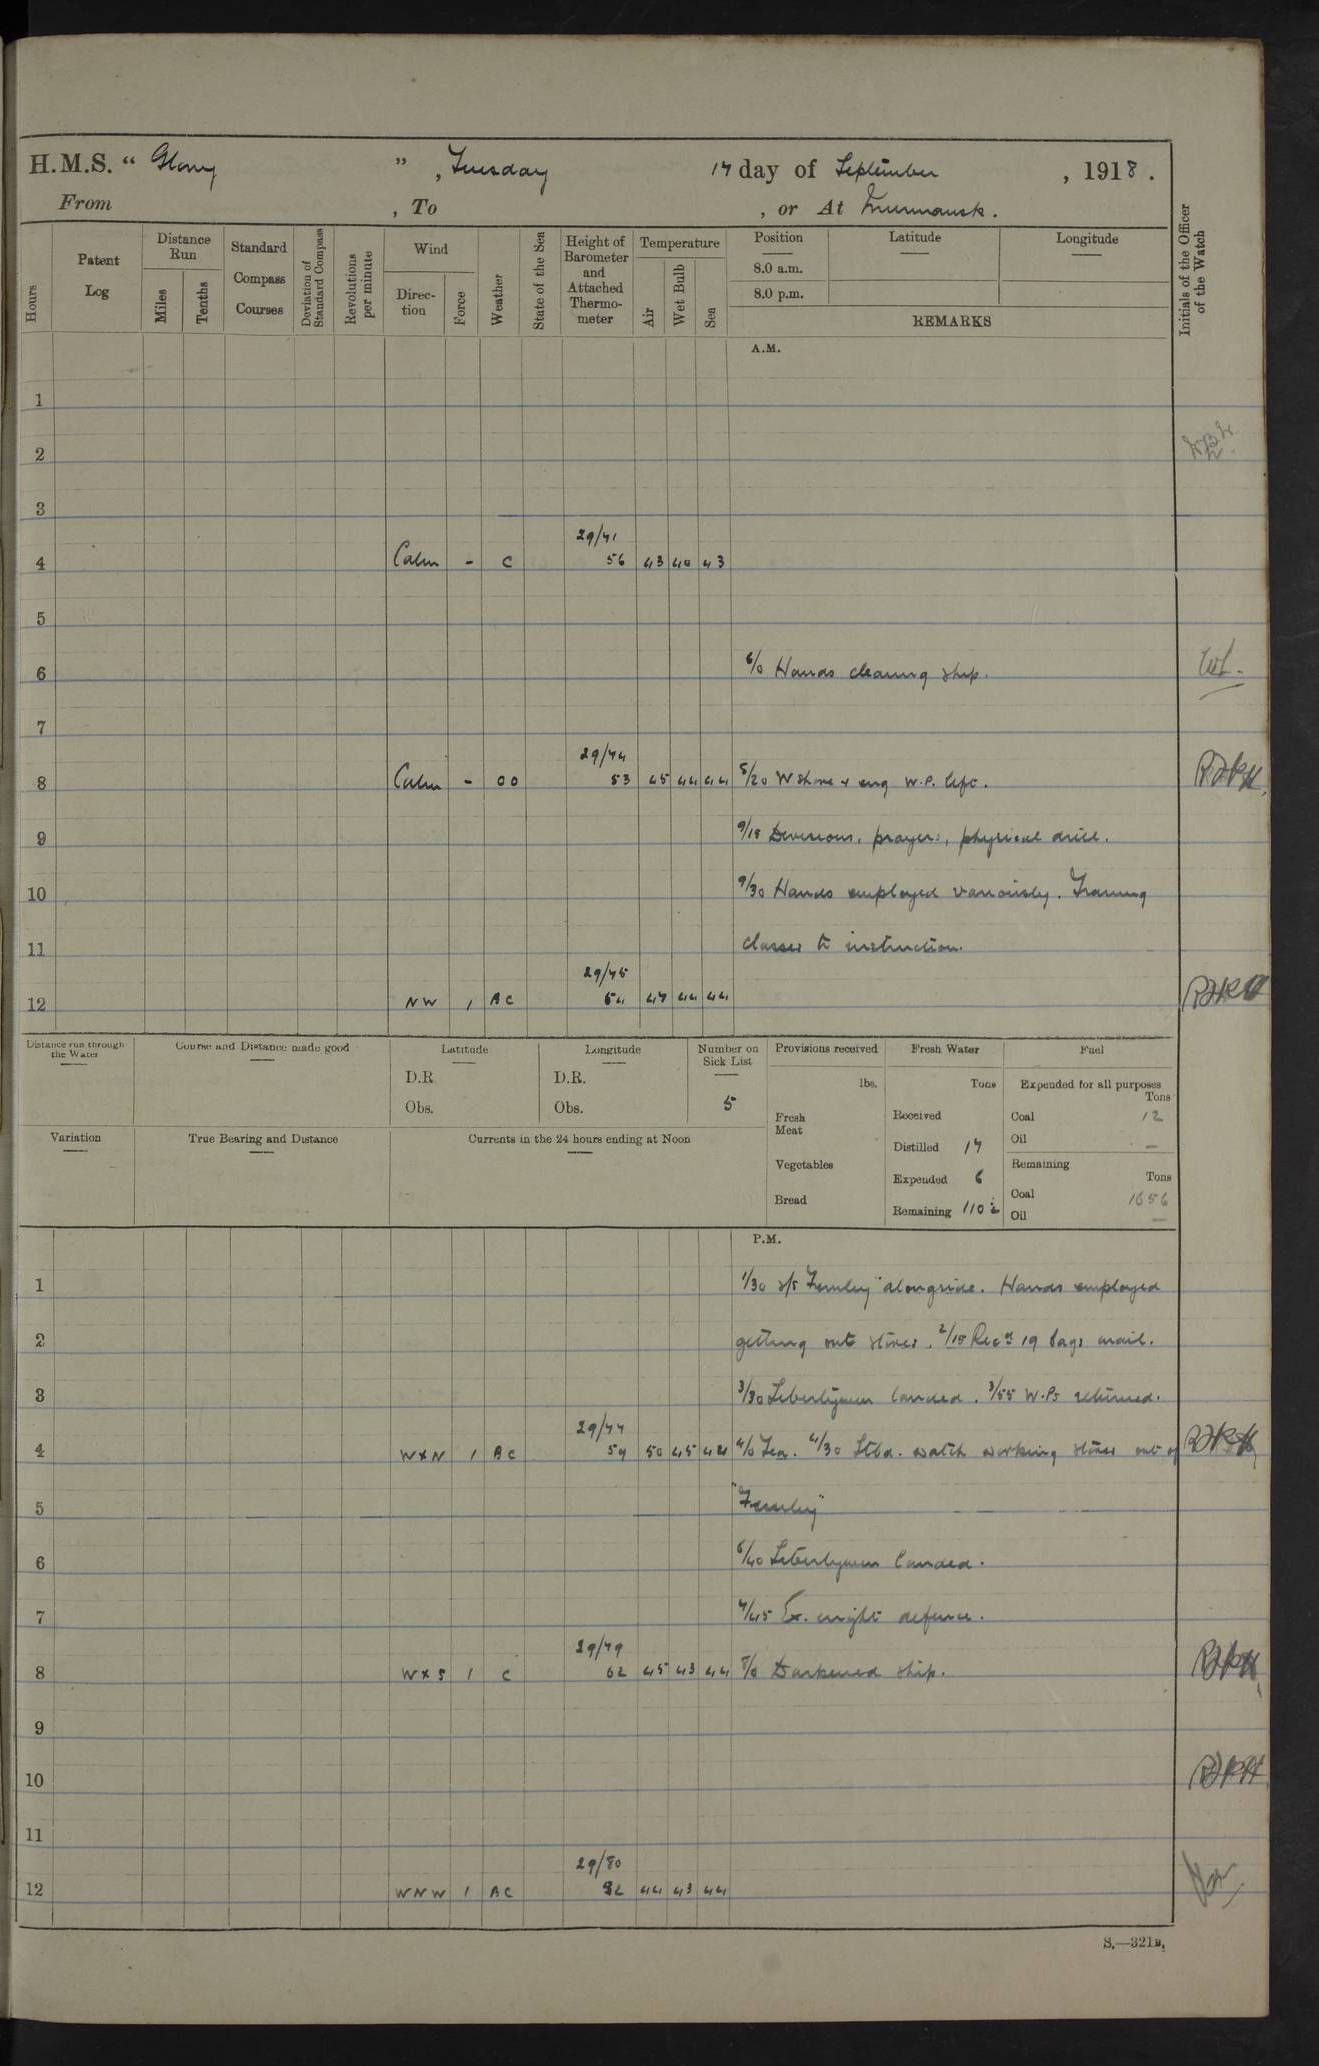 H.M.S. “ Glory ”, Tuesday 17 day of September, 1918.
From , To , or At Murmansk.
Hours
Patent Log
Distance Run
Miles
Tenths
Standard Compass Courses
Deviation of Standard Compass
Revolutions per minute
Wind
Direction
Force
Weather
State of the Sea
Height of Barometer and Attached Thermometer
Temperature
Air
Wet Bulb
Sea
Position
8.0 a.m.
8.0 p.m.
Latitude
Longitude
REMARKS
Initials of the Officer of the Watch
A.M.
1
2
3
29/71
4 Calm - C 56 43 40 43
5
6 6/0 Hands cleaning ship.
7
29/74
8 Calm - OO 53 45 44 44 8/20 W shore & eng W.P. left.
9 9/15 Divisions, prayers, physical drill.
10 9/30 Hands employed variously. Training
11 classes to instruction.
29/75
12 NW 1 BC 54 47 44 44
Distance run through the Water
Course and Distance made good
Latitude
D.R
Obs.
Longitude
D.R.
Obs.
Number on Sick List
5
Provisions received
lbs.
Fresh Meat
Vegetables
Bread
Fresh Water
Tons
Received
Distilled 17
Expended 6
Remaining 110½
Fuel
Expended for all purposes
Tons
Coal 12
Oil —
Remaining
Tons
Coal 1656
Oil —
Variation
True Bearing and Distance
Currents in the 24 hours ending at Noon
P.M.
1 1/30 s/s "Femley" alongside. Hands employed
2 getting out stores. 2/15 Recd 19 bags mail.
3 3/30 Libertymen landed. 3/55 W.Ps returned.
29/77
4 WXN 1 BC 59 50 45 44 4/0 Tea. 4/30 Stbd. watch working stores out of
5 "Femley"
6 6/40 Libertymen landed.
7 7/45 Ex. night defence.
29/79
8 WXS 1 C 62 45 43 44 8/0 Darkened ship.
9
10
11
29/80
12 WNW 1 BC 52 44 43 44
S.—321B.